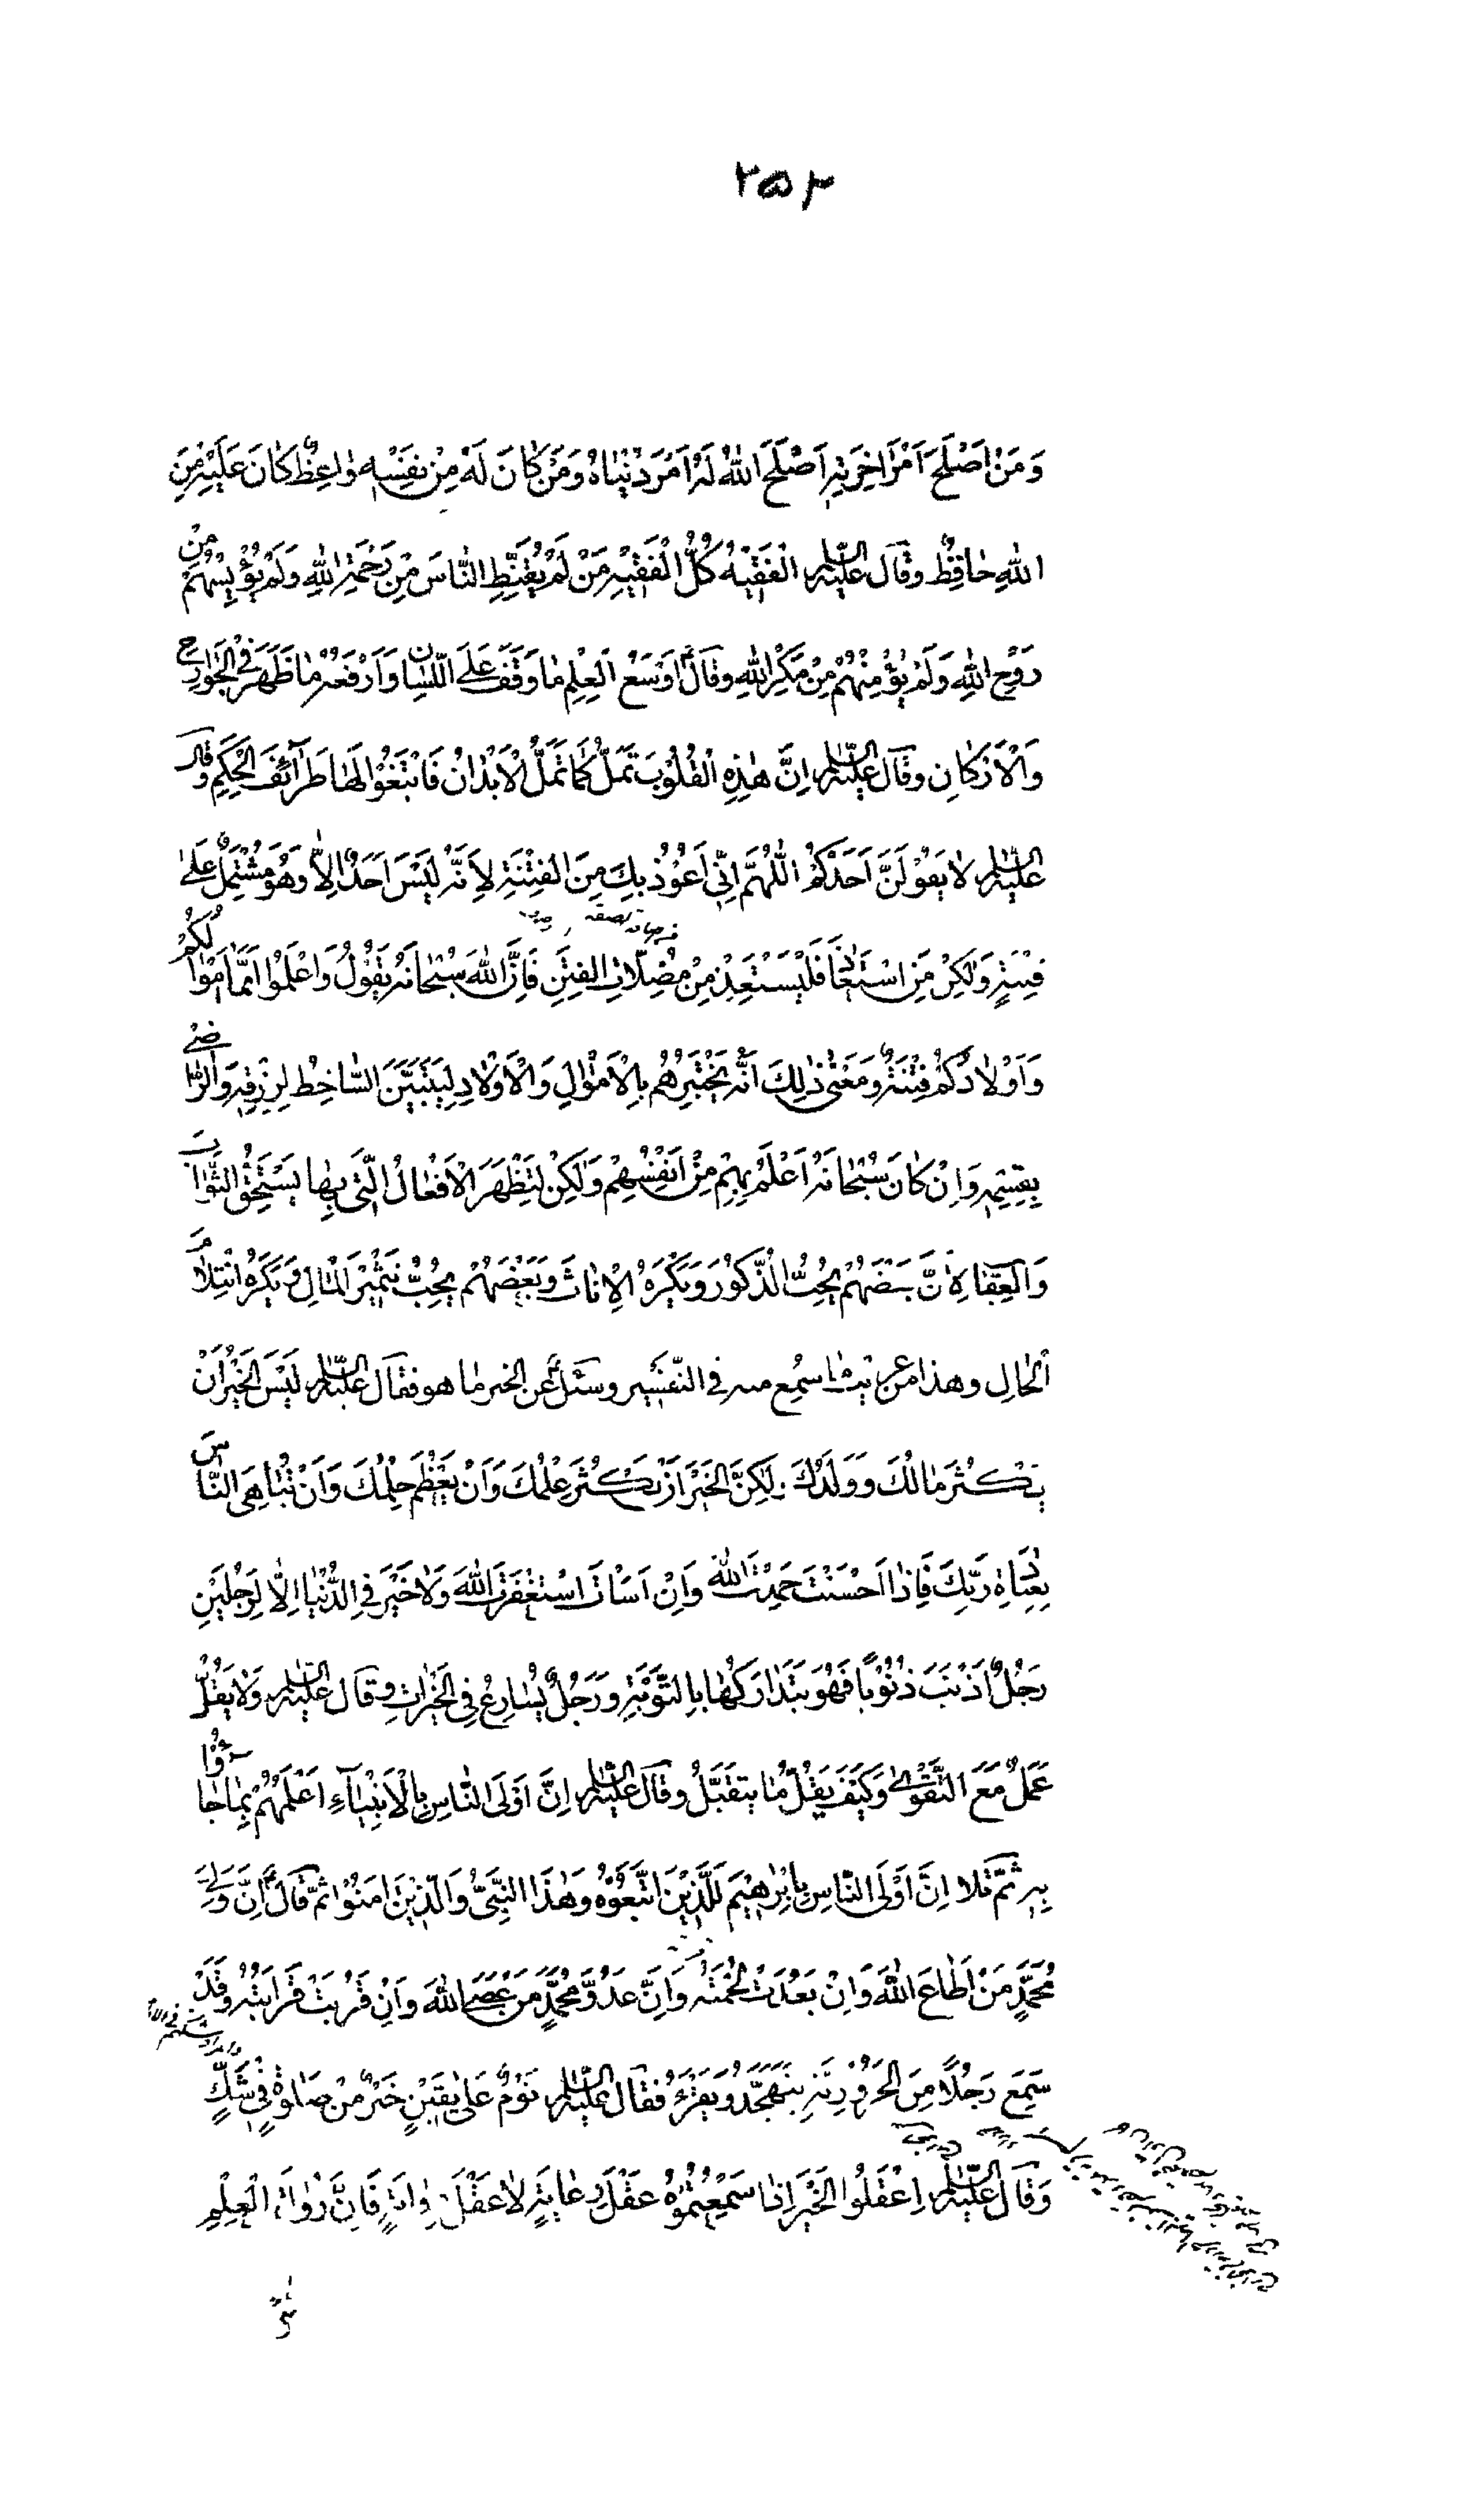 ٢٥٣
وَمَنْ اَصْلَحَ اَمْرَ اٰخِرَتِهِ اَصْلَحَ اللهُ لَهُ اَمْرَ دُنْيٰاهُ وَمَنْ كٰانَ لَهُ مِنْ نَفْسِهِ وٰاعِظٌ كٰانَ عَلَيْهِ مِنَ
اللهِ حٰافِظٌ وقٰالَ عليه السّلام الْفَقِيْهُ كُلُّ الْفَقِيْهِ مَنْ لَمْ يُقَنِّطِ النّٰاسَ مِنْ رَحْمَةِ اللهِ وَلَمْ يُؤْيِسْهُمْ مِنْ
رَوْحِ اللهِ وَلَمْ يُؤْمِنْهُمْ مِنْ مَكْرِ اللهِ وقالَ ع اَوْضَعُ الْعِلْمِ مٰا وَقَفَ عَلَى اللِّسٰانِ وَاَرْفَعُهُ مٰا ظَهَرَ فِي الْجَوٰارِحِ
وَالْاَرْكٰانِ وقٰال عليه السّلام اِنَّ هٰذِهِ الْقُلُوْبَ تَمَلُّ كَمٰا تَمَلُّ الْاَبْدٰانُ فَابْتَغُوْا لَهٰا طَرٰآئِفَ الْحِكَمِ وقٰال
عليه السّلام لٰا يَقُوْلَنَّ اَحَدُكُمْ اللّٰهُمَّ اِنّي اَعُوْذُ بِكَ مِنَ الْفِتْنَةِ لِاَنَّهُ لَيْسَ اَحَدٌ اِلّٰا وَهُوَ مُشْتَمِلٌ عَلىٰ
فِتْنَةٍ وَلٰكِنْ مَنِ اسْتَعٰاذَ فَلْيَسْتَعِذْ مِنْ مُضِلّٰاتِ الْفِتَنِ فَاِنَّ اللهَ سُبْحٰانَهُ يَقُوْلُ وَاعْلَمُوْا اَنَّمٰا اَمْوٰالُكُمْ
وَاَوْلٰادُكُمْ فِتْنَةٌ وَمَعْنىٰ ذٰلِكَ اَنَّهُ يَخْتَبِرُهُمْ بِالْاَمْوٰالِ وَالْاَوْلٰادِ لِيَتَبَيَّنَ السّٰاخِطُ لِرِزْقِهِ وَالرّٰاضِيْ
بِقِسْمِهِ وَاِنْ كٰانَ سُبْحٰانَهُ اَعْلَمَ بِهِمْ مِنْ اَنْفُسِهِمْ وَلٰكِنْ لِتَظْهَرَ الْاَفْعٰالُ الَّتي بِهٰا يَسْتَحِقُّ الثَّوٰابَ
وَالْعِقٰابَ لِاَنَّ بَعْضَهُمْ يُحِبُّ الذُّكُوْرَ وَيَكْرَهُ الْاِنٰاثَ وَبَعْضَهُمْ يُحِبُّ تَثْمِيْرَ الْمٰالِ وَيَكْرَهُ انْثِلٰامَ
الْحٰالِ وهذا من غريب ما سمع منه في التّفسير وسئل ع عن الخير ما هو فقال عليه السّلام لَيْسَ الْخَيْرُ اَنْ
يَكْثُرَ مٰالُكَ وَوَلَدُكَ وَلٰكِنَّ الْخَيْرَ اَنْ يَكْثُرَ عِلْمُكَ وَاَنْ يَعْظُمَ حِلْمُكَ وَاَنْ تُبٰاهِيَ النّٰاسَ
بِعِبٰادَةِ رَبِّكَ فَاِذٰا اَحْسَنْتَ حَمِدْتَ اللهَ وَاِنْ اَسَأْتَ اسْتَغْفَرْتَ اللهَ وَلٰا خَيْرَ فِي الدُّنْيٰا اِلّٰا لِرَجُلَيْنِ
رَجُلٌ اَذْنَبَ ذُنُوْباً فَهُوَ يَتَدٰارَكُهٰا بِالتَّوْبَةِ وَرَجُلٌ يُسٰارِعُ فِي الْخَيْرٰاتِ وقٰال عليه السّلام وَلٰا يَقِلُّ
عَمَلٌ مَعَ التَّقْوىٰ وَكَيْفَ يَقِلُّ مٰا يُتَقَبَّلُ وقٰالَ عليه السّلام اِنَّ اَوْلَى النّٰاسِ بِالْاَنْبِيٰآءِ اَعْلَمُهُمْ بِمٰا جٰاؤُا
بِهِ ثمّ تلا اِنَّ اَوْلَى النّٰاسِ بِاِبْرٰاهِيْمَ لَلَّذِيْنَ اتَّبَعُوْهُ وَهٰذَا النَّبِيُّ وَالَّذِيْنَ اٰمَنُوْا ثمّ قٰالَ ع اِنَّ وَلِيَّ
مُحَمَّدٍ مَنْ اَطٰاعَ اللهَ وَاِنْ بَعُدَتْ لُحْمَتُهُ وَاِنَّ عَدُوَّ مُحَمَّدٍ مَنْ عَصَى اللهَ وَاِنْ قَرُبَتْ قَرٰابَتُهُ وقَدْ
سَمِعَ رَجُلًا مِنَ الْحَرُوْرِيَّةِ يَتَهَجَّدُ وَيَقْرَءُ فقٰال عليه السّلام نَوْمٌ عَلىٰ يَقِيْنٍ خَيْرٌ مِنْ صَلٰوةٍ فِي شَكٍّ
وَقٰال عليه السّلام اِعْقَلُوا الْخَبَرَ اِذٰا سَمِعْتُمُوْهُ عَقْلَ رِعٰايَةٍ لٰا عَقْلَ رِوٰايَةٍ فَاِنَّ رُوٰاةَ الْعِلْمِ